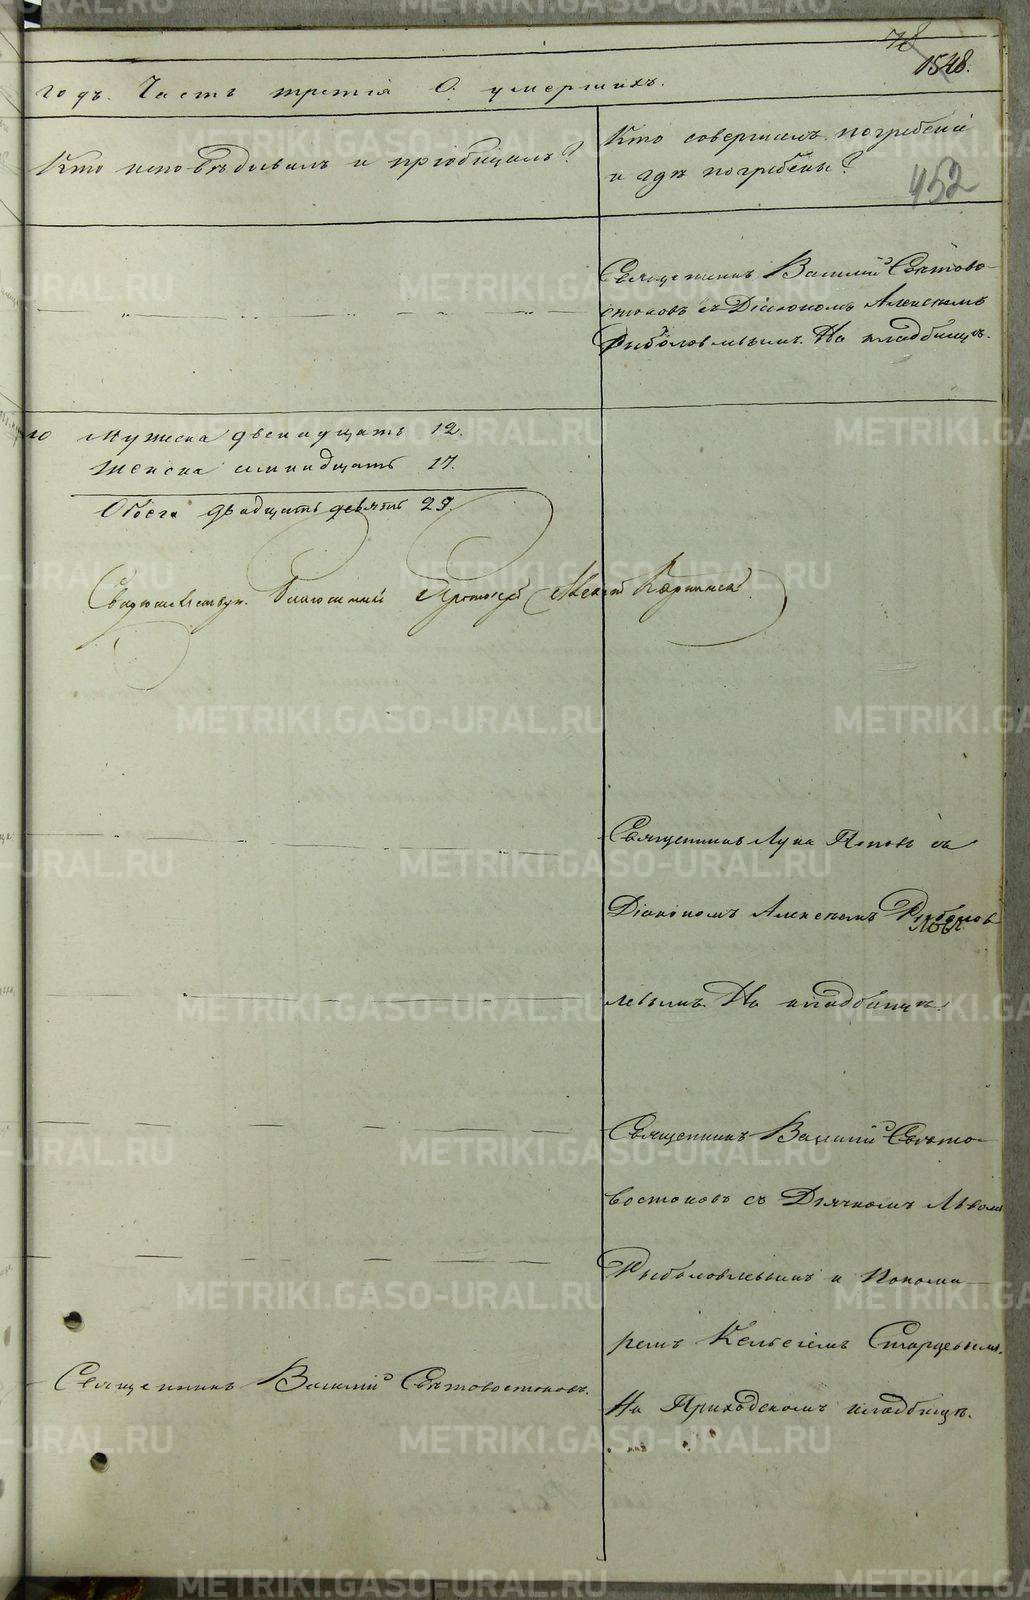 78
1548.
годъ. Часть третія О умершихъ.
Кто исповѣдывалъ и пріобщалъ?
Кто совершалъ погребеніе
и гдѣ погребены?
452
Священникъ Василій Свѣтово-
стоковъ съ Діакономъ Алексѣемъ
Рыболовлевымъ. На кладбищѣ.
го Мужеска двенадцать 12.
Женска семнадцать 17.
Обоего двадцать девять 29.
Свидѣтельствую. Благочинный Протоіерей
Священникъ Лука Поповъ съ
Діакономъ Алексѣемъ Рыболов
левымъ. На кладбищѣ.
Священникъ Василій Свѣто-
востоковъ съ Дьячкомъ Львомъ
Рыболовлевымъ и Понома-
ремъ Старцевымъ.
Священникъ Василій Свѣтовостоковъ.
На Приходскомъ кладбищѣ.
METRIKI.GASO-URAL.RU